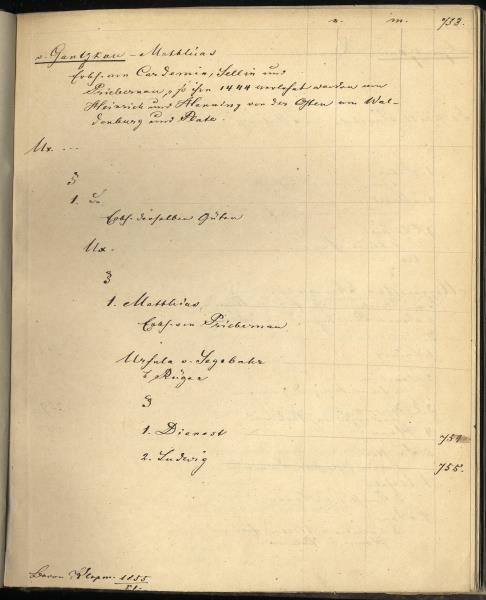 v. m. 753.
v. Gantzkau - Matthias
Erbh. von Cardemin, Sellin und
Priebernau, so ihm 1444 verlehnt worden von
Heinrich und Henning von der Osten von Wal-
denburg und Plate.
Ux. ...
1.
Erbh. derselben Güter
Ux.
1. Matthias
Erbh. von Priebernau
Ursula v. Segebahr
Rügen
1. Dienest
2. Ludwig 755.
Baron 1855